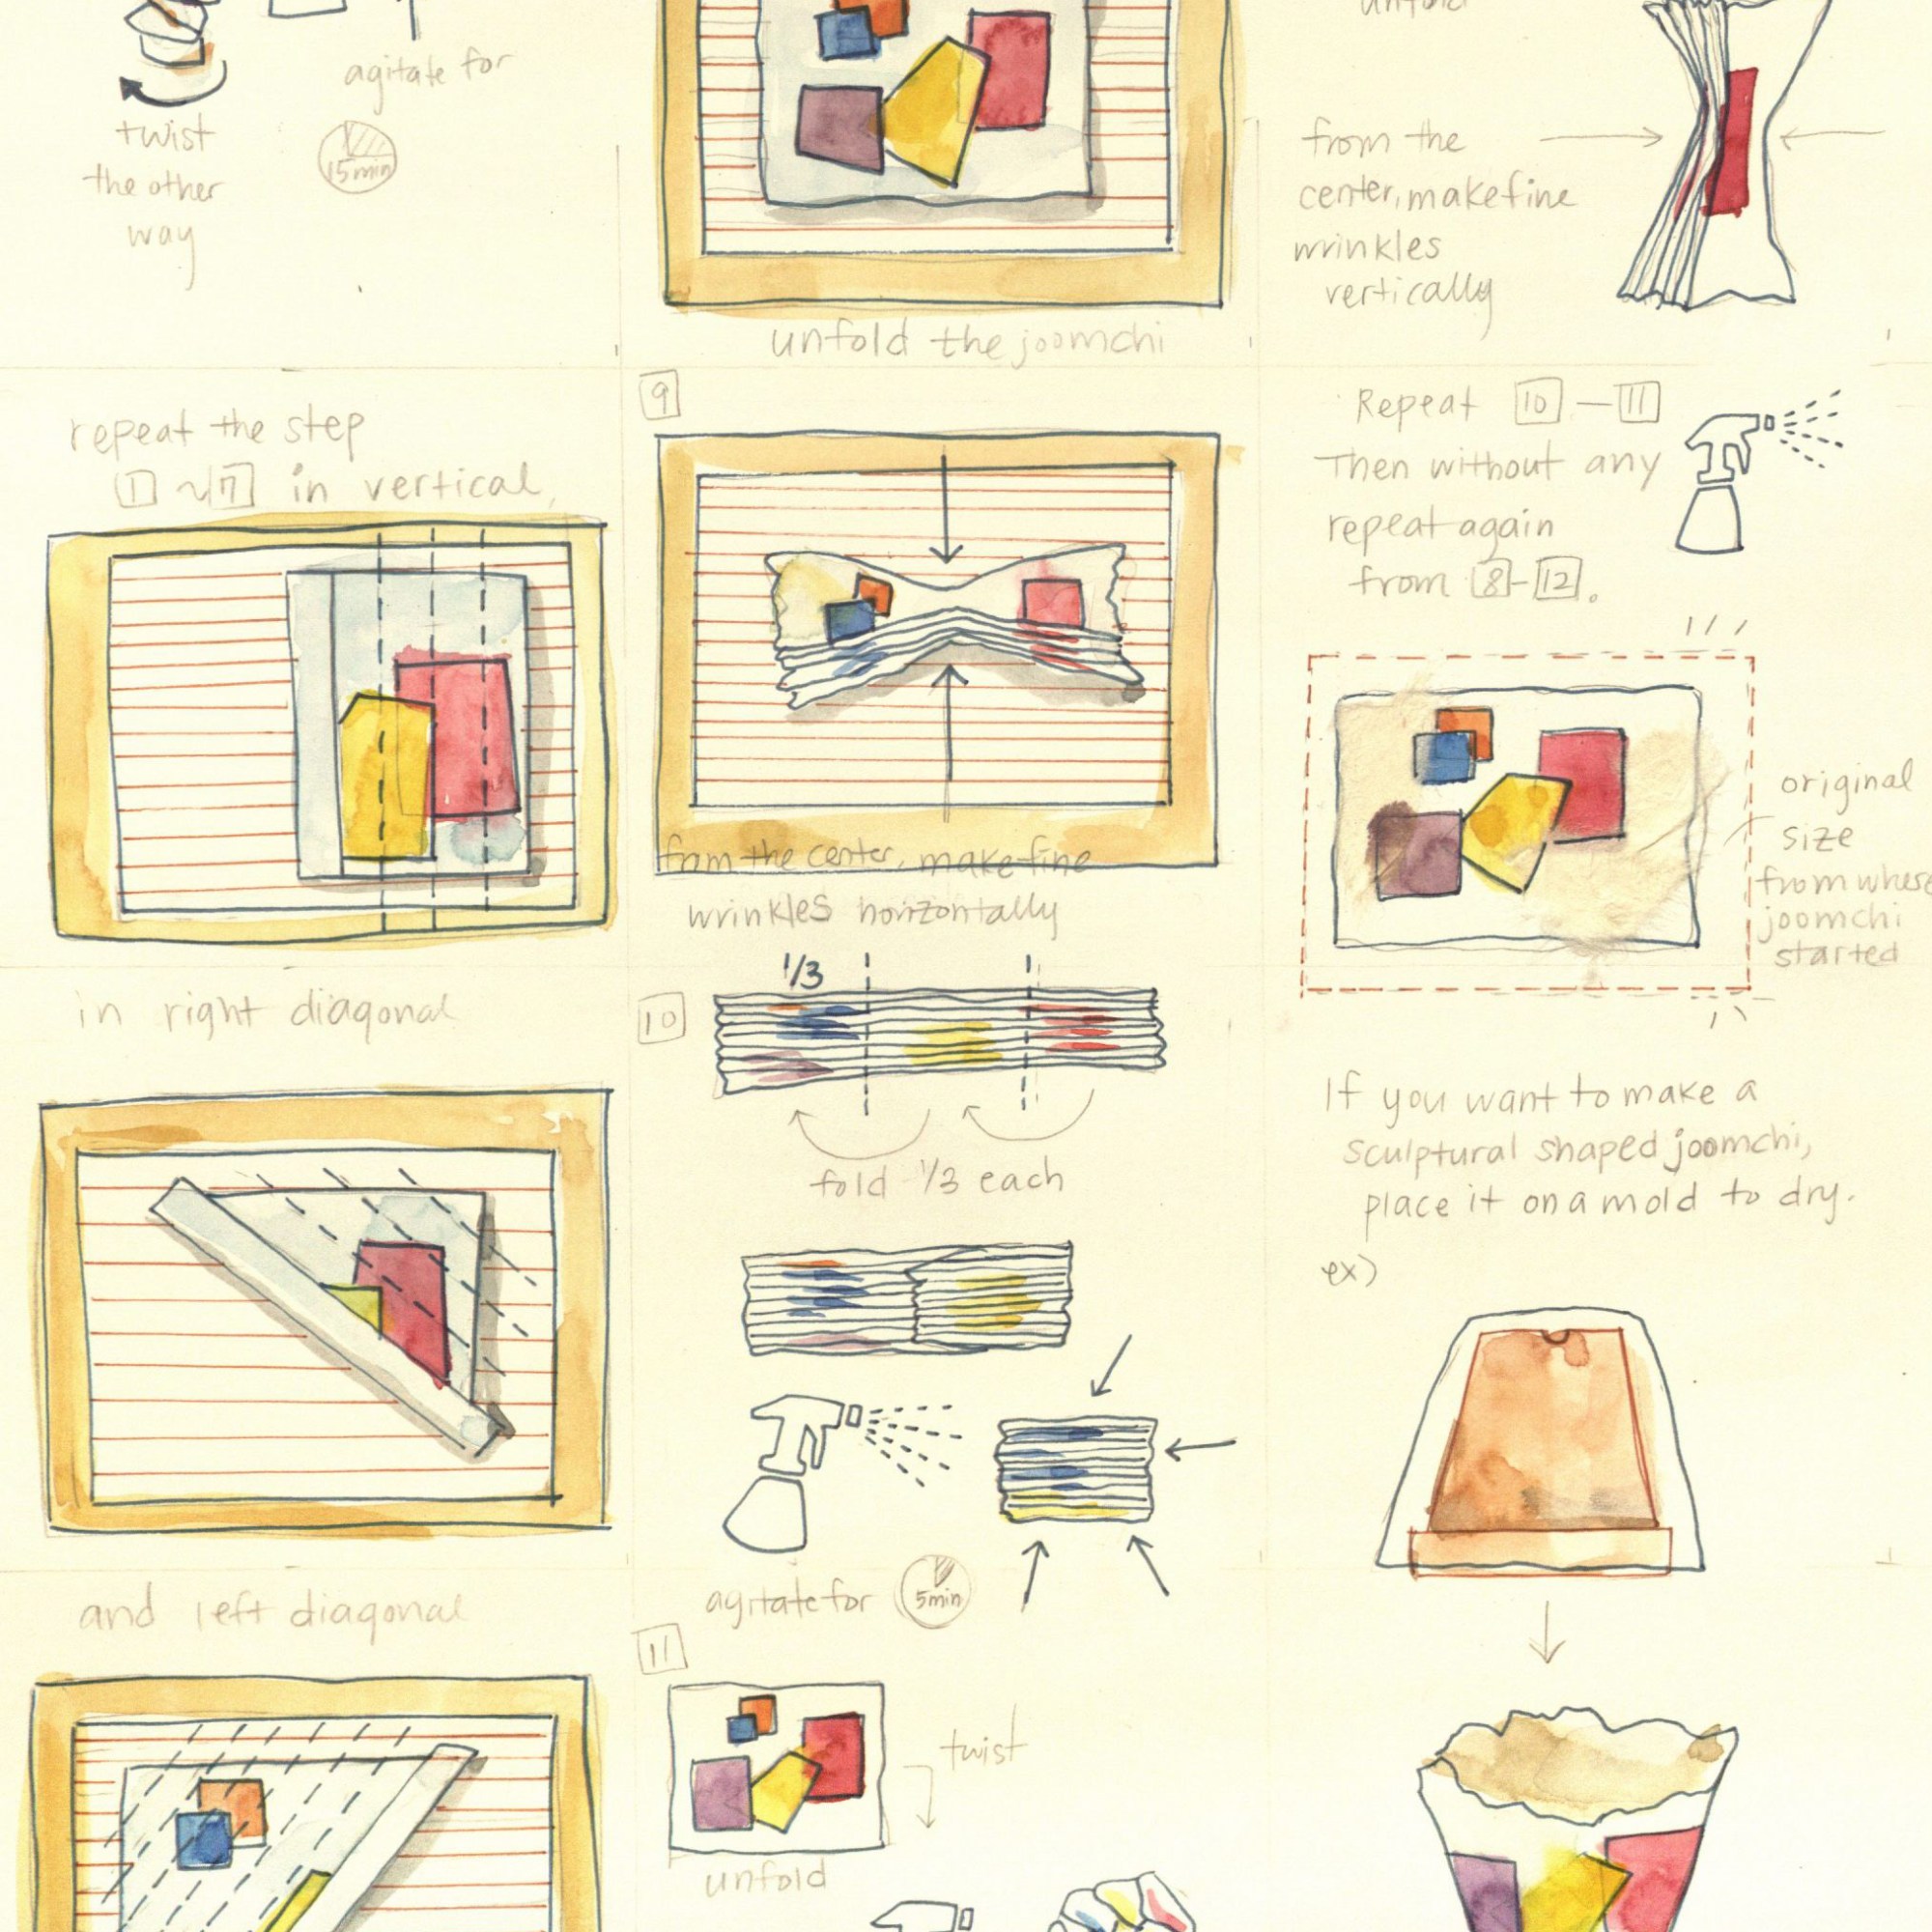 agitate for
15min
twist
the other
way
repeat the step
1 ~ 7 in vertical,
in right diagonal
and left diagonal
unfold the joomchi
9
from the center, make fine
wrinkles horizontally
10
1/3
fold 1/3 each
agitate for 5min
11
twist
unfold
unfold
from the
center, make fine
wrinkles
vertically
Repeat 10 — 11
Then without any
repeat again
from 8 - 12.
original
size
from where
joomchi
started
If you want to make a
sculptural shaped joomchi,
place it on a mold to dry.
ex)